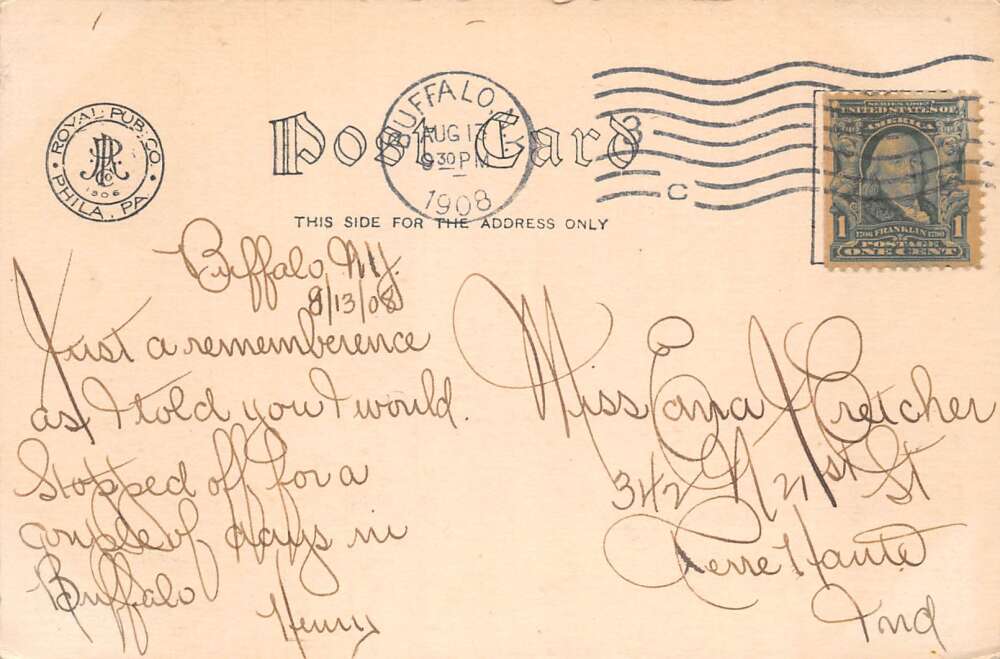 ROYAL PUB. CO.
1906
PHILA. PA.
Post Card
BUFFALO
AUG 13
9 30 PM
1908
C
THIS SIDE FOR THE ADDRESS ONLY
SERIES 1902
UNITED STATES OF
AMERICA
1 1
1706 FRANKLIN 1790
POSTAGE
ONE CENT
Buffalo N.Y.
8/13/08
Just a rememberence
as I told you I would.
Stopped off for a
couple of days in
Buffalo
Henry
Miss Edna Kreicher
342 N 21st St
Terre Haute
Ind